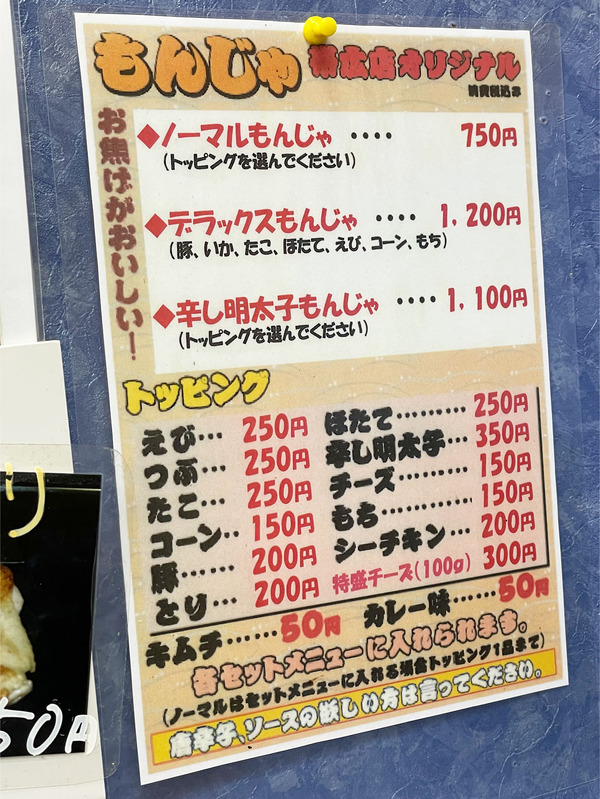 もんじゃ 帯広店オリジナル
消費税込み
お焦げがおいしい!
◆ノーマルもんじゃ ････ 750円
(トッピングを選んでください)
◆デラックスもんじゃ ････ 1,200円
(豚、いか、たこ、ほたて、えび、コーン、もち)
◆辛し明太子もんじゃ ････ 1,100円
(トッピングを選んでください)
トッピング
えび… 250円
つぶ… 250円
たこ… 250円
コーン‥ 150円
豚…… 200円
とり… 200円
ほたて……… 250円
辛し明太子… 350円
チーズ……… 150円
もち………… 150円
シーチキン… 200円
特盛チーズ(100g) 300円
キムチ……50円 カレー味……50円
各セットメニューに入れられます。
(ノーマルはセットメニューに入れる場合トッピング1品まで)
唐辛子、ソースの欲しい方は言ってください。
50円